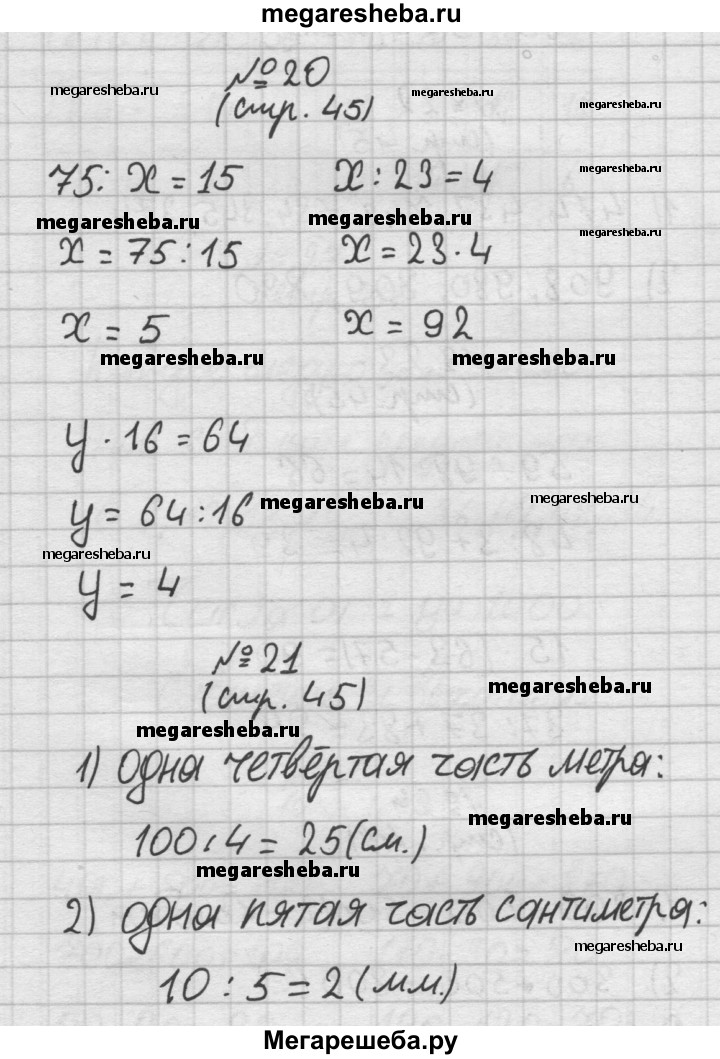 megaresheba.ru
№20
megaresheba.ru
megaresheba.ru
(стр. 45)
75: x = 15 x : 23 = 4
megaresheba.ru
megaresheba.ru
megaresheba.ru
megaresheba.ru
x = 75 : 15 x = 23 · 4
x = 5 x = 92
megaresheba.ru
megaresheba.ru
y · 16 = 64
y = 64 : 16
megaresheba.ru
megaresheba.ru
megaresheba.ru
y = 4
№21
(стр. 45)
megaresheba.ru
megaresheba.ru
1) одна четвёртая часть метра:
megaresheba.ru
100 : 4 = 25 (см.)
megaresheba.ru
2) одна пятая часть сантиметра:
megaresheba.ru
10 : 5 = 2 (мм.)
Мегарешеба.ру